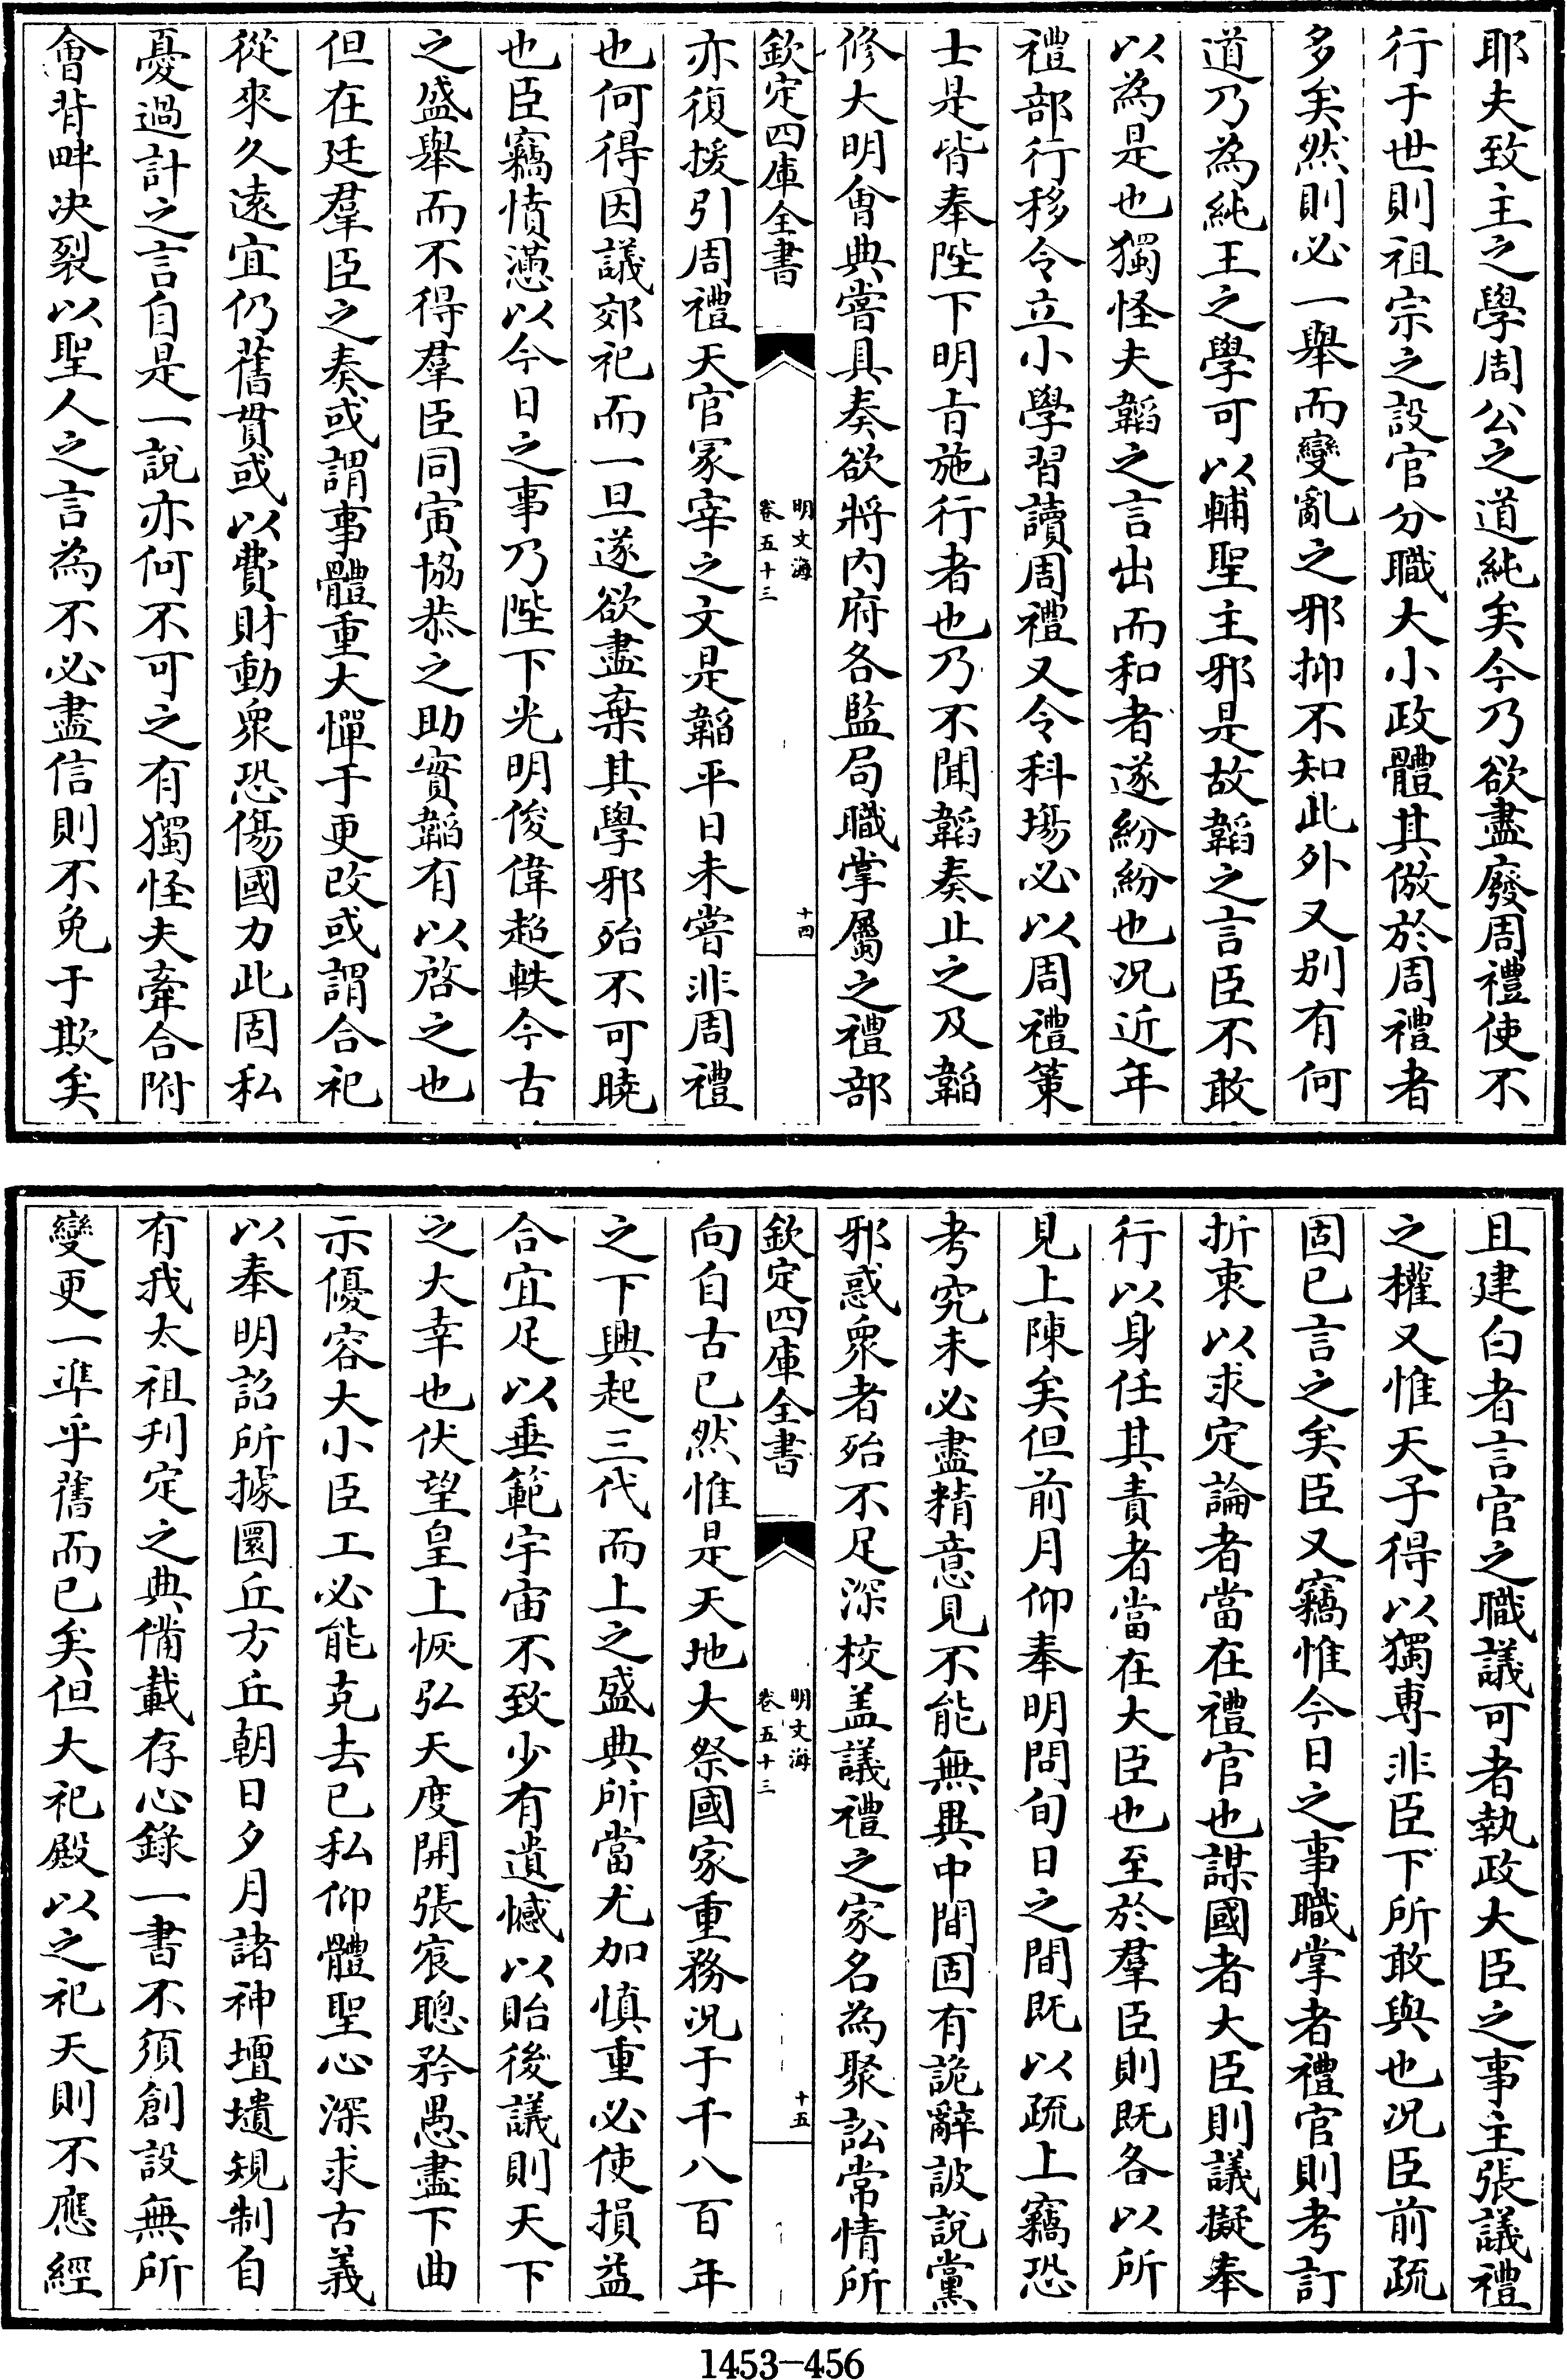 耶夫致主之學周公之道純矣今乃欲盡廢周禮使不
行于世則祖宗之設官分職大小政體其倣於周禮者
多矣然則必一舉而變亂之邪抑不知此外又別有何
道乃為純王之學可以輔聖主邪是故韜之言臣不敢
以為是也獨怪夫韜之言出而和者遂紛紛也况近年
禮部行移令立小學習讀周禮又令科場必以周禮策
士是皆奉陛下明旨施行者也乃不聞韜奏止之及韜
修大明會典嘗具奏欲將内府各監局職掌屬之禮部
欽定四庫全書
明文海
卷五十三
十四
亦復援引周禮天官冢宰之文是韜平日未嘗非周禮
也何得因議郊祀而一旦遂欲盡棄其學邪殆不可曉
也臣竊憤懣以今日之事乃陛下光明俊偉超軼今古
之盛舉而不得羣臣同寅協恭之助實韜有以啓之也
但在廷羣臣之奏或謂事體重大憚于更改或謂合祀
從來久遠宜仍舊貫或以費財動衆恐傷國力此固私
憂過計之言自是一說亦何不可之有獨怪夫牽合附
會背畔决裂以聖人之言為不必盡信則不免于欺矣
且建白者言官之職議可者執政大臣之事主張議禮
之權又惟天子得以獨專非臣下所敢與也况臣前疏
固已言之矣臣又竊惟今日之事職掌者禮官則考訂
折衷以求定論者當在禮官也謀國者大臣則議擬奉
行以身任其責者當在大臣也至於羣臣則既各以所
見上陳矣但前月仰奉明問旬日之間既以疏上竊恐
考究未必盡精意見不能無異中間固有詭辭詖說黨
邪惑衆者殆不足深校盖議禮之家名為聚訟常情所
欽定四庫全書
明文海
卷五十三
十五
向自古已然惟是天地大祭國家重務况于千八百年
之下興起三代而上之盛典所當尤加慎重必使損益
合宜足以垂範宇宙不致少有遺憾以貽後議則天下
之大幸也伏望皇上恢弘天度開張宸聰矜愚盡下曲
示優容大小臣工必能克去已私仰體聖心深求古義
以奉明詔所據圜丘方丘朝日夕月諸神壇壝規制自
有我太祖刋定之典備載存心錄一書不須創設無所
變更一準乎舊而已矣但大祀殿以之祀天則不應經
1453-456